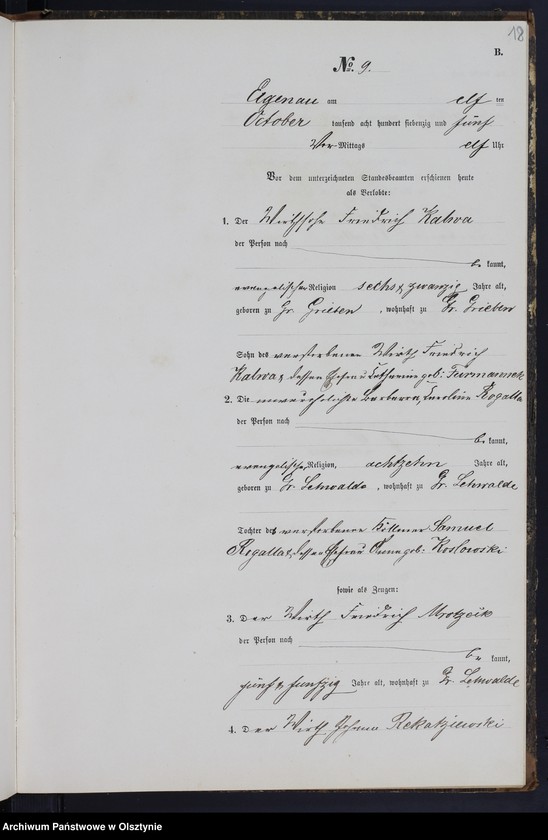 18
B.
No. 9.
Elgenau am elf ten
October tausend acht hundert siebenzig und fünf
Vor-Mittags elf Uhr
Vor dem unterzeichneten Standesbeamten erschienen heute
als Verlobte:
1. Der Wirthsohn Friedrich Kalwa
der Person nach
be kannt,
evangelischer Religion sechs & zwanzig Jahre alt,
geboren zu Gr. Grieben, wohnhaft zu Gr. Grieben
Sohn des verstorbenen Wirth Friedrich
Kalwa & dessen Ehefrau Catharine geb:
2. Die unverehelichte Barbara, Karoline Rogalla
der Person nach
be kannt,
evangelischer Religion, achtzehn Jahre alt,
geboren zu Gr. Lehwalde, wohnhaft zu Gr. Lehwalde
Tochter des verstorbenen Köllmer Samuel
Rogalla & dessen Ehefrau Anna geb: Koslowski
sowie als Zeugen:
3. Der Wirth Friedrich Mrotzek
der Person nach
be kannt,
fünf & funfzig Jahre alt, wohnhaft zu Gr. Lehwalde
4. Der Wirth Johann
Archiwum Państwowe w Olsztynie